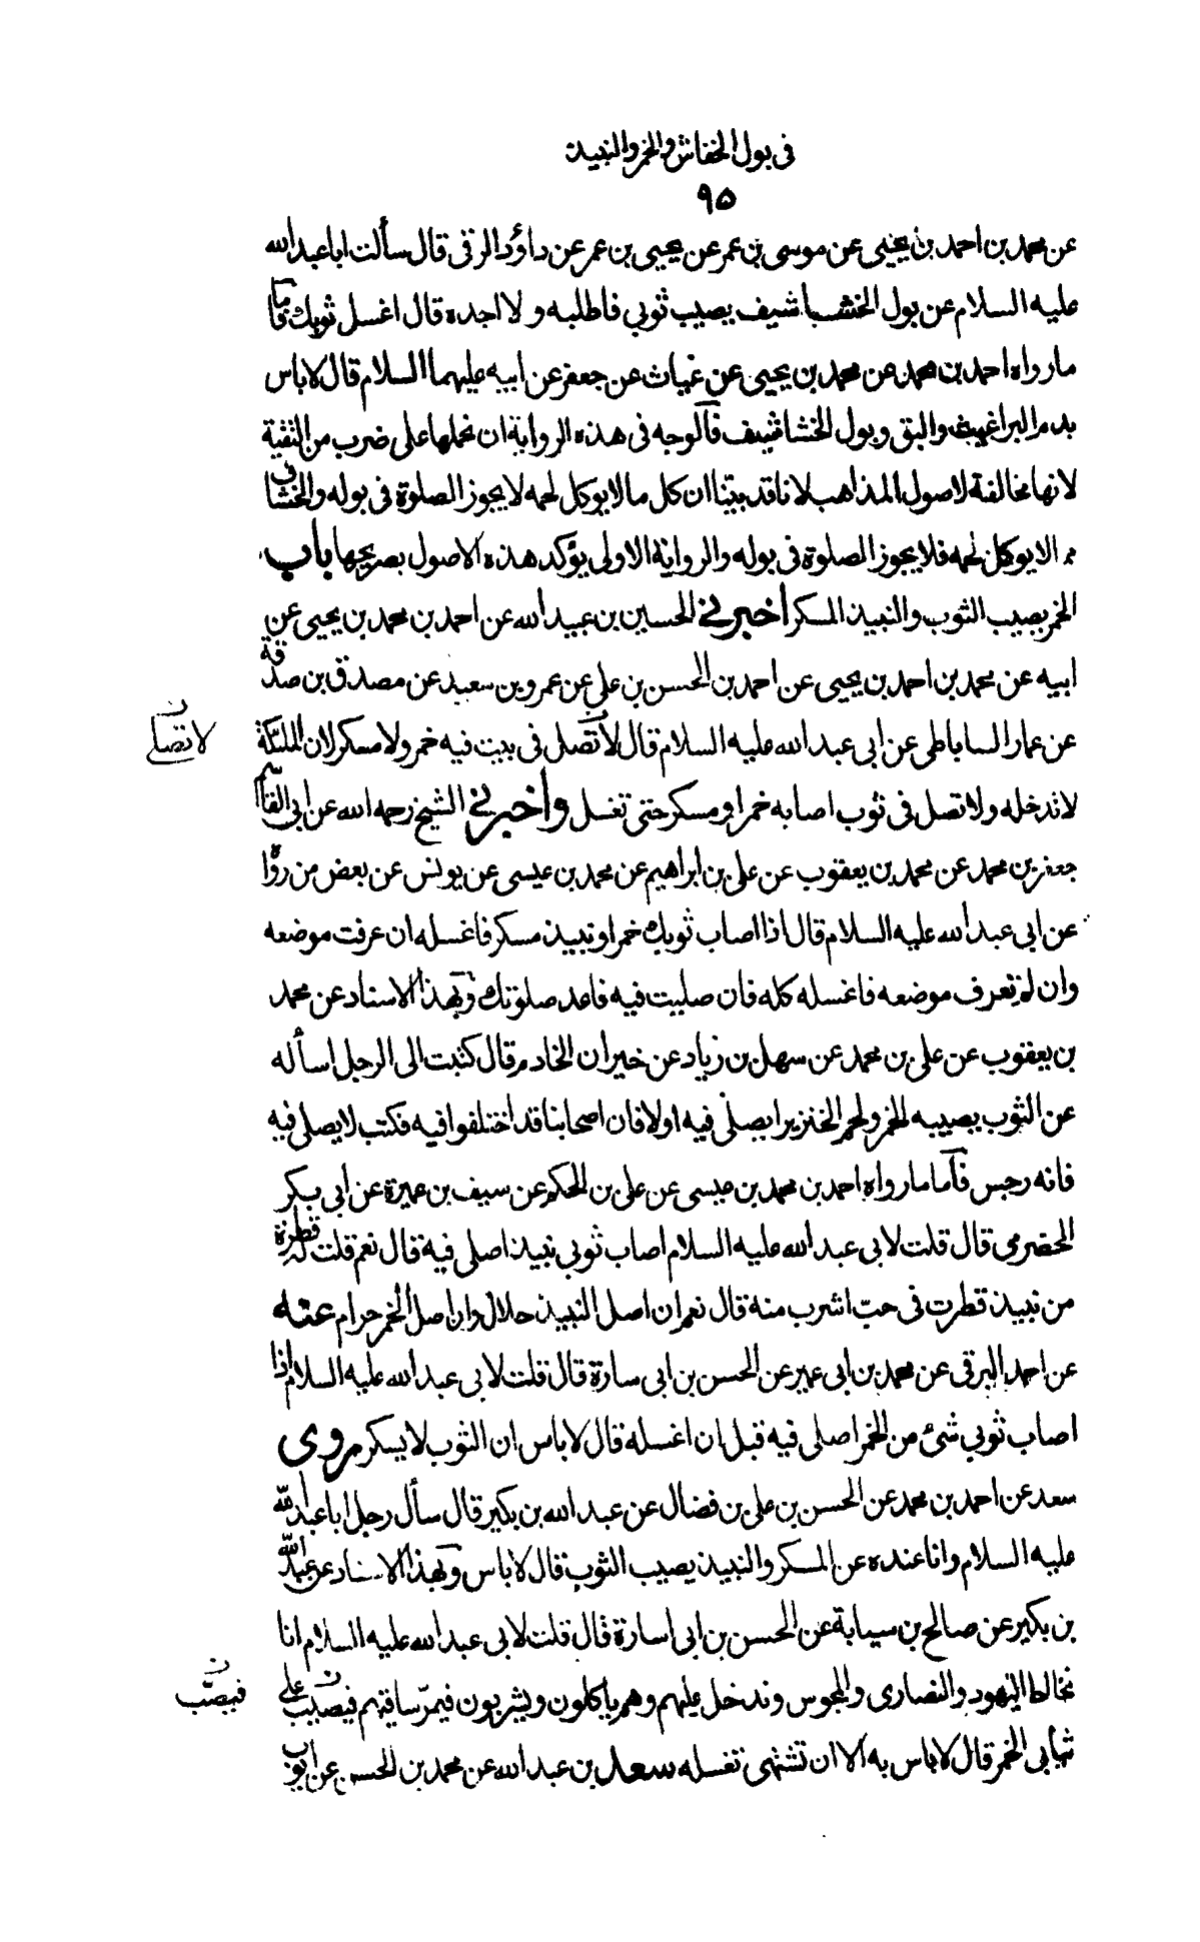 فى بول الخفاش والخمر والنبيذ
٩٥
عن محمد بن احمد بن يحيى عن موسى بن عمر عن يحيى بن عمر عن داؤد الرقى قال سألت ابا عبد الله
عليه السلام عن بول الخشاشيف يصيب ثوبى فاطلبه ولا اجده قال اغسل ثوبك فآما
ما رواه احمد بن محمد عن محمد بن يحيى عن غياث عن جعفر عن ابيه عليهما السلام قال لاباس
بدم البراغيث والبق وبول الخشاشيف فآلوجه فى هذه الرواية ان نحملها على ضرب من التقية
لانها مخالفة لاصول المذاهب لانا قد بينا ان كل ما لا يوكل لحمه لا يجوز الصلوة فى بوله والخشاف
مما لا يوكل لحمه فلا يجوز الصلوة فى بوله والرواية الاولى يؤكد هذه الاصول بصريحها باب
الخمر يصيب الثوب والنبيذ المسكر أخبرنى الحسين بن عبيد الله عن احمد بن محمد بن يحيى عن
ابيه عن محمد بن احمد بن يحيى عن احمد بن الحسن بن على عن عمرو بن سعيد عن مصدق بن صدقة
عن عمار الساباطى عن ابى عبد الله عليه السلام قال لا تصل فى بيت فيه خمر ولا مسكر لان الملئكة
لا تصلى ن
لا تدخله ولا تصل فى ثوب اصابه خمر او مسكر حتى تغسل وأخبرنى الشيخ رحمه الله عن ابى القاسم
جعفر بن محمد عن محمد بن يعقوب عن على بن ابراهيم عن محمد بن عيسى عن يونس عن بعض من رواه
عن ابى عبد الله عليه السلام قال اذا اصاب ثوبك خمر او نبيذ مسكر فاغسله ان عرفت موضعه
وان لم تعرف موضعه فاغسله كله فان صليت فيه فاعد صلوتك وبهذا الاسناد عن محمد
بن يعقوب عن على بن محمد عن سهل بن زياد عن خيران الخادم قال كتبت الى الرجل اسأله
عن الثوب يصيبه الخمر ولحم الخنزير ايصلى فيه او لا فان اصحابنا قد اختلفوا فيه فكتب لا يصلى فيه
فانه رجس فآما ما رواه احمد بن محمد بن عيسى عن على بن الحكم عن سيف بن عميرة عن ابى بكر
الحضرمى قال قلت لابى عبد الله عليه السلام اصاب ثوبى نبيذ اصلى فيه قال نعم قلت له قطرة
من نبيذ قطرت فى حب اشرب منه قال نعم ان اصل النبيذ حلال وان اصل الخمر حرام عنه
عن احمد البرقى عن محمد بن ابى عمير عن الحسن بن ابى سارة قال قلت لابى عبد الله عليه السلام اذا
اصاب ثوبى شئ من الخمر اصلى فيه قبل ان اغسله قال لاباس ان الثوب لا يسكر روى
سعد عن احمد بن محمد عن الحسن بن على بن فضال عن عبد الله بن بكير قال سأل رجل ابا عبد الله
عليه السلام وانا عنده عن المسكر والنبيذ يصيب الثوب قال لاباس وبهذا الاسناد عن عبد الله
بن بكير عن صالح بن سيابة عن الحسن بن ابى سارة قال قلت لابى عبد الله عليه السلام انا
نخالط اليهود والنصارى والمجوس وندخل عليهم وهم ياكلون ويشربون فيمر ساقيهم فيصيب على
فيصبّ ن
ثيابى الخمر قال لاباس به الا ان تشتهى تغسله سعد بن عبد الله عن محمد بن الحسين عن ايوب